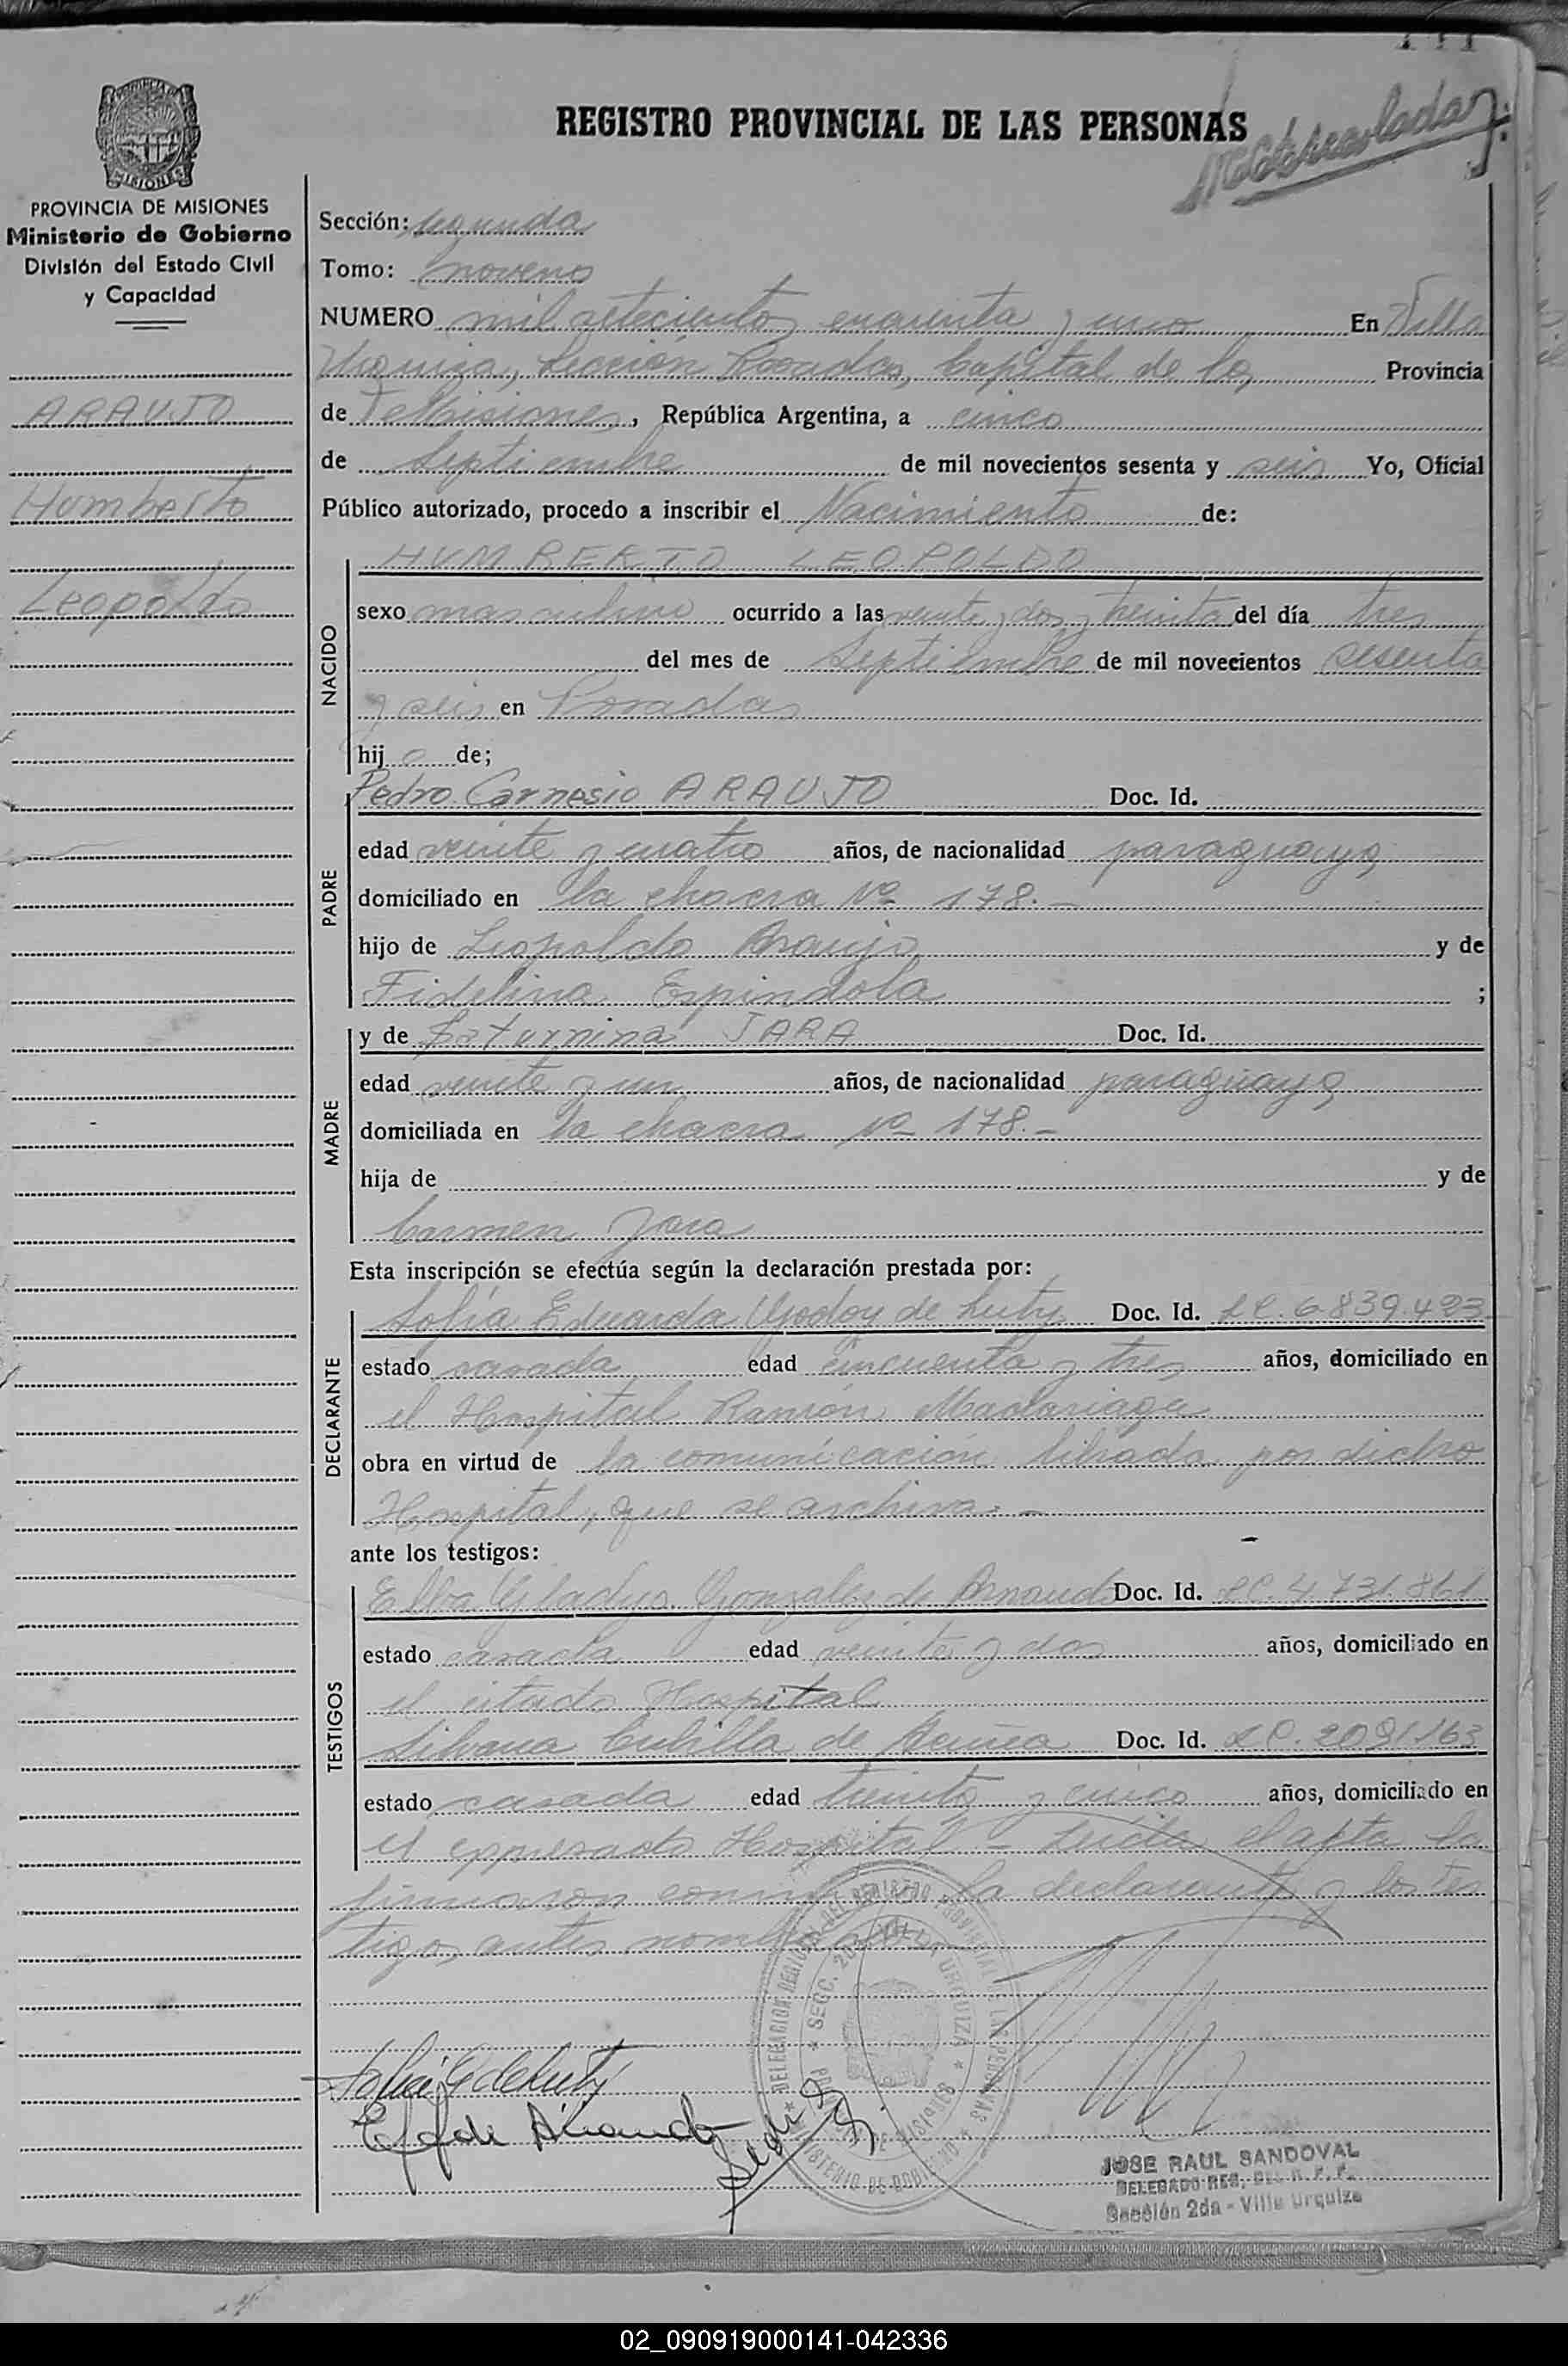 141
REGISTRO PROVINCIAL DE LAS PERSONAS
MISIONES
PROVINCIA DE MISIONES
Ministerio de Gobierno
División del Estado Civil
y Capacidad
ARAUJO
Humberto
Leopoldo
Sección: Segunda
Tomo: noveno
NUMERO mil setecientos cuarenta y uno En Villa
Urquiza, Sección Posadas, Capital de la Provincia
de Misiones, República Argentina, a cinco
de Septiembre de mil novecientos sesenta y seis Yo, Oficial
Público autorizado, procedo a inscribir el Nacimiento de:
NACIDO
HUMBERTO LEOPOLDO
sexo masculino ocurrido a las veinte y dos y treinta del día tres
del mes de Septiembre de mil novecientos sesenta
y seis en Posadas
hijo de;
PADRE
Pedro Carnesio ARAUJO Doc. Id.
edad veinte y cuatro años, de nacionalidad paraguaya
domiciliado en la chacra Nº 178.-
hijo de Leopoldo Araujo y de
Fidelina Espindola ;
MADRE
y de Saturnina JARA Doc. Id.
edad veinte y un años, de nacionalidad paraguaya
domiciliada en la chacra Nº 178.-
hija de y de
Carmen Jara
Esta inscripción se efectúa según la declaración prestada por:
DECLARANTE
Sofía Eduarda Godoy de Luty Doc. Id. LC. 6.839.423
estado casada edad cincuenta y tres años, domiciliado en
el Hospital Ramón Madariaga
obra en virtud de la comunicación librada por dicho
Hospital, que se archiva.-
ante los testigos:
TESTIGOS
Elba Gladys Gonzalez de Doc. Id. LC. 4.731.861
estado casada edad veinte y dos años, domiciliado en
el citado Hospital
Silvana Cubilla de Acuña Doc. Id. LC. 2091163
estado casada edad treinta y cinco años, domiciliado en
el expresado Hospital - Leída el acta la
firmaron conmigo la declarante y los tes
tigos antes nombrados
DELEGACION REGIONAL DEL REGISTRO PROVINCIAL DE LAS PERSONAS
SECC. 2da VILLA URQUIZA
MINISTERIO DE GOBIERNO
JOSE RAUL SANDOVAL
DELEGADO REG. DEL R. P. P.
Sección 2da - Villa Urquiza
02_090919000141-042336